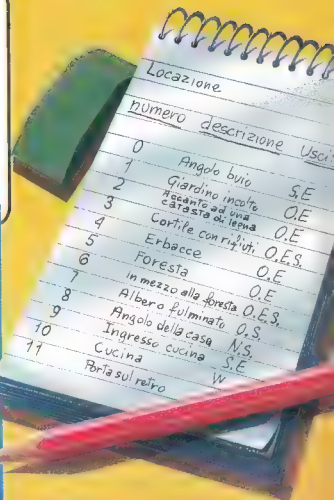 Locazione
numero descrizione Usci
0 Angolo buio S.E
1 Giardino incolto O.E
2 Accanto ad una
catasta di legna O.E
3 Cortile con rifiuti O.E.S.
4 Erbacce O.E
5 Foresta O.E
6 in mezzo alla foresta O.E.S.
7 Albero fulminato O.S.
8 Angolo della casa N.S.
9 Ingresso cucina S.E
10 Cucina W
11 Porta sul retro